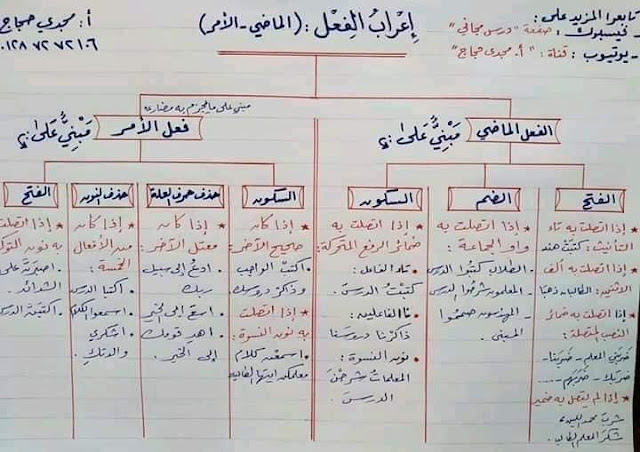 تابعوا المزيد على:
- فيسبوك: صفحة "درس مجاني"
- يوتيوب: قناة: "أ. مجدي حجاج"
إعْرابُ الفِعْل: (الماضي - الأمر)
أ: مجدي حجاج
٠١٢٨٧٢٧٢١٦
الفعل الماضي مَبْنِيٌّ على:
الفتح
* إذا اتصلت به تاء
التأنيث: كتبَتْ هند
* إذا اتصلت به ألف
الاثنين: الطالبان ذهبَا
* إذا اتصلت به ضمائر
النصب المتصلة:
ضربَني المعلم - ضربَنا -
ضربَكَ - ضربَهم ....
* إذا لم يتصل به ضمير
شربَ محمد اللبن
شكرَ المعلم الطالب.
الضم
* إذا اتصلت به
واو الجماعة:
- الطلاب كتبُوا الدرس
- المعلمون شرحُوا الدرس
- المهندسون صمموا
المبنى.
السكون
* إذا اتصلت به
ضمائر الرفع المتحركة:
• تاء الفاعل:
كتبْتُ الدرسَ.
• نا الفاعلين:
ذاكرْنا دروسَنا
• نون النسوة:
المعلمات شرحْنَ
الدرسَ.
مبني على ما يجزم به مضارعه
فعل الأمر مَبْنِيٌّ على:
السكون
* إذا كان
صحيح الآخر:
• اكتبْ الواجب
وذاكرْ دروسك.
* إذا اتصلت
به نون النسوة:
• اسمعْن كلام
معلمكن أيتها الطالبات
حذف حرف العلة
* إذا كان
معتل الآخر:
• ادعُ إلى سبيل
ربك
• اسعَ إلى الخير
• اهدِ قومك
إلى الخير.
حذف النون
* إذا كان
من الأفعال
الخمسة:
• اكتبا الدرس
• اسمعوا الكلام
• اشكري
والدتكِ.
الفتح
* إذا اتصلت
به نون التوكيد
• اصبرَنَّ على
الشدائد.
• اكتبَنَّ الدرس